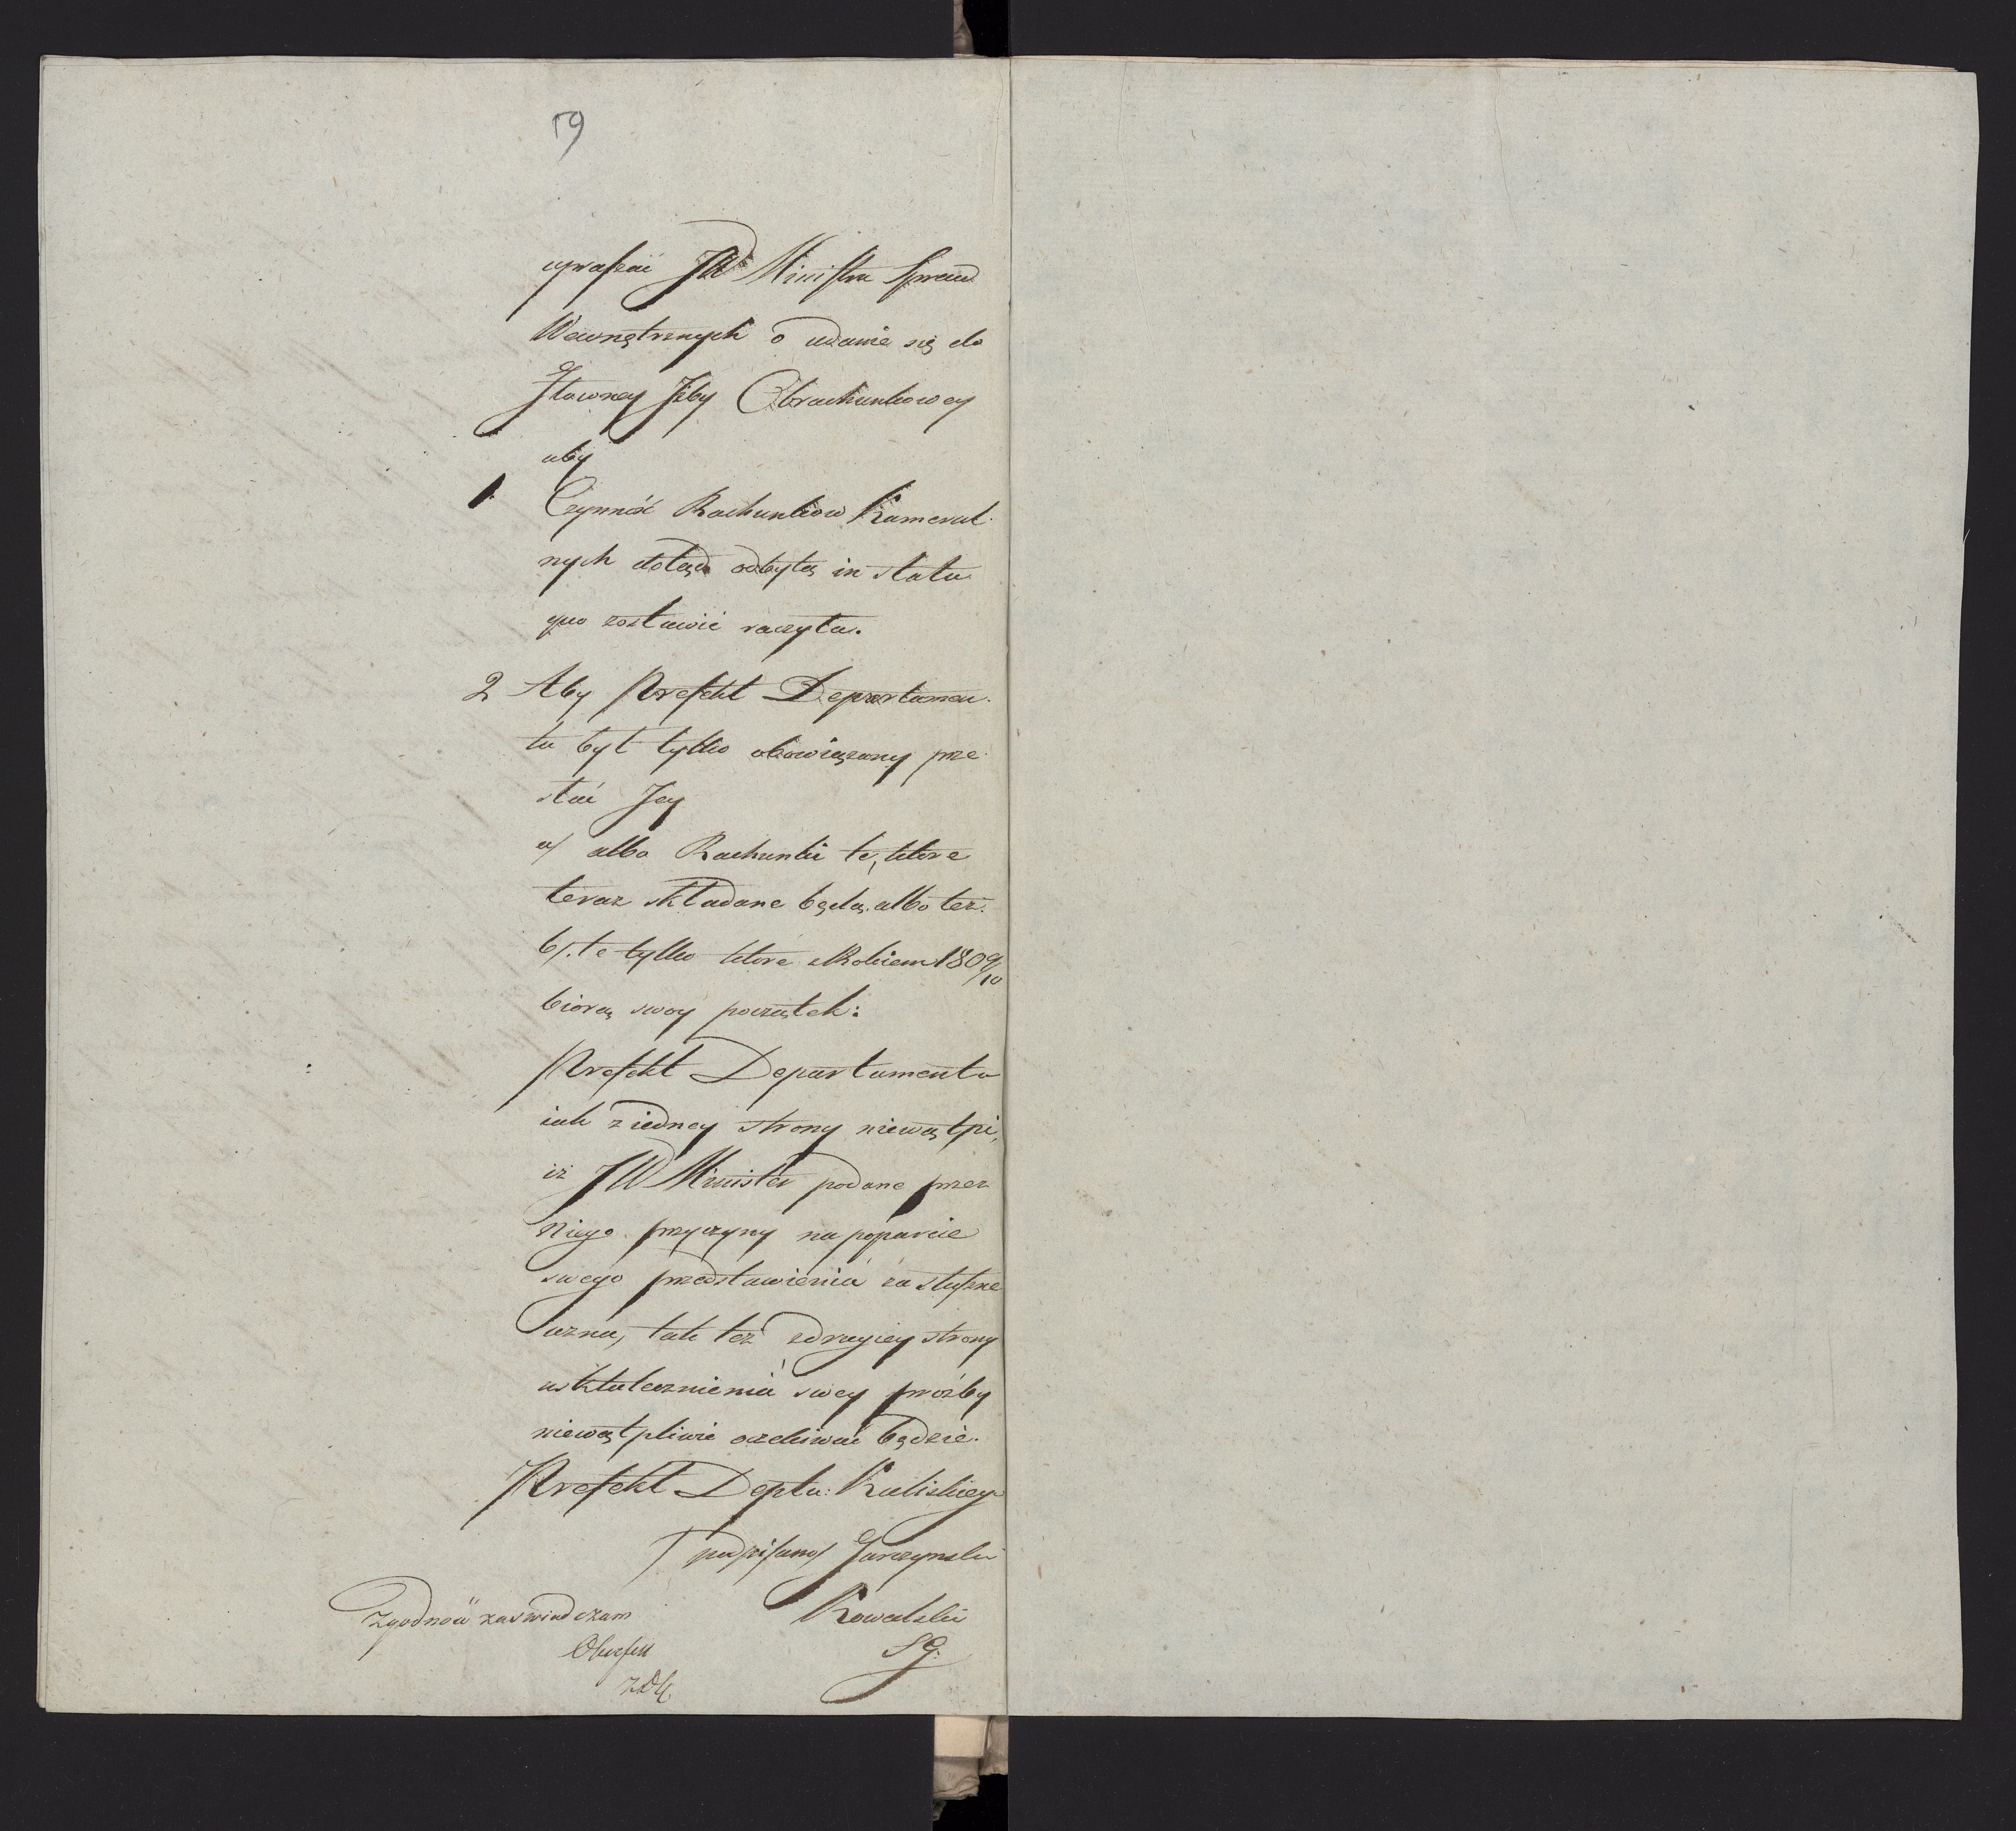 19
upraszać JWo Ministra Spraw
Wewnętrznych o udanie się do
Głowney Izby Obrachunkowey
aby
1. Czynność Rachunkow Kameral
nych dotąd odbytą in statu
quo zostawić raczyła.
2 Aby Prefekt Departamen
tu był tylko obowiązany prze
słać Jey
a/ albo Rachunki te, ktore
teraz składane będą, albo też
b/. te tylko ktore z Rokiem 1809/10
biorą swoy początek:
Prefekt Departamentu
iak z iedney strony niewątpi,
iż JW Minister podane przez
niego przyczyny na poparcie
swego przedstawienia za słuszne
uzna, tak też z drugiey strony
uskutecznienia swey prozby
niewątpliwie oczekiwać będzie.
Prefekt Deptu: Kaliskiego
/podpisano/ Garczynski
Zgodność zaświadczam
Kowalski
SG.